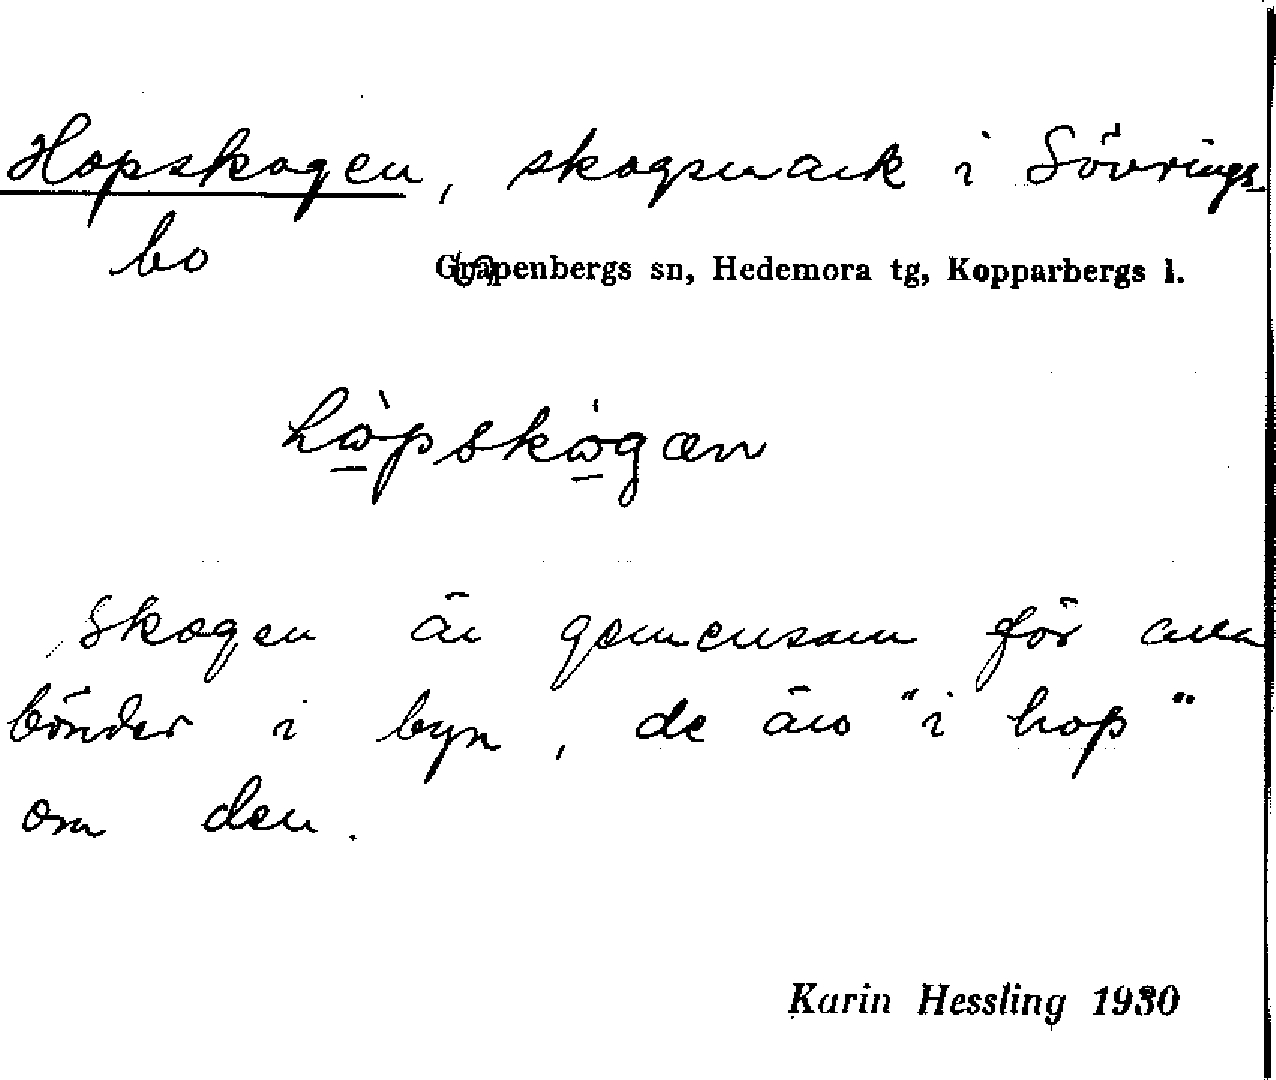 Hopskogen, skogsmark i Sövrings-
bo
Grapenbergs sn, Hedemora tg, Kopparbergs l.
hὼ̱pskω̱̇gæn
Skogen är gemensam för alla
bönder i byn, de äro "i hop"
om den.
Karin Hessling 1930